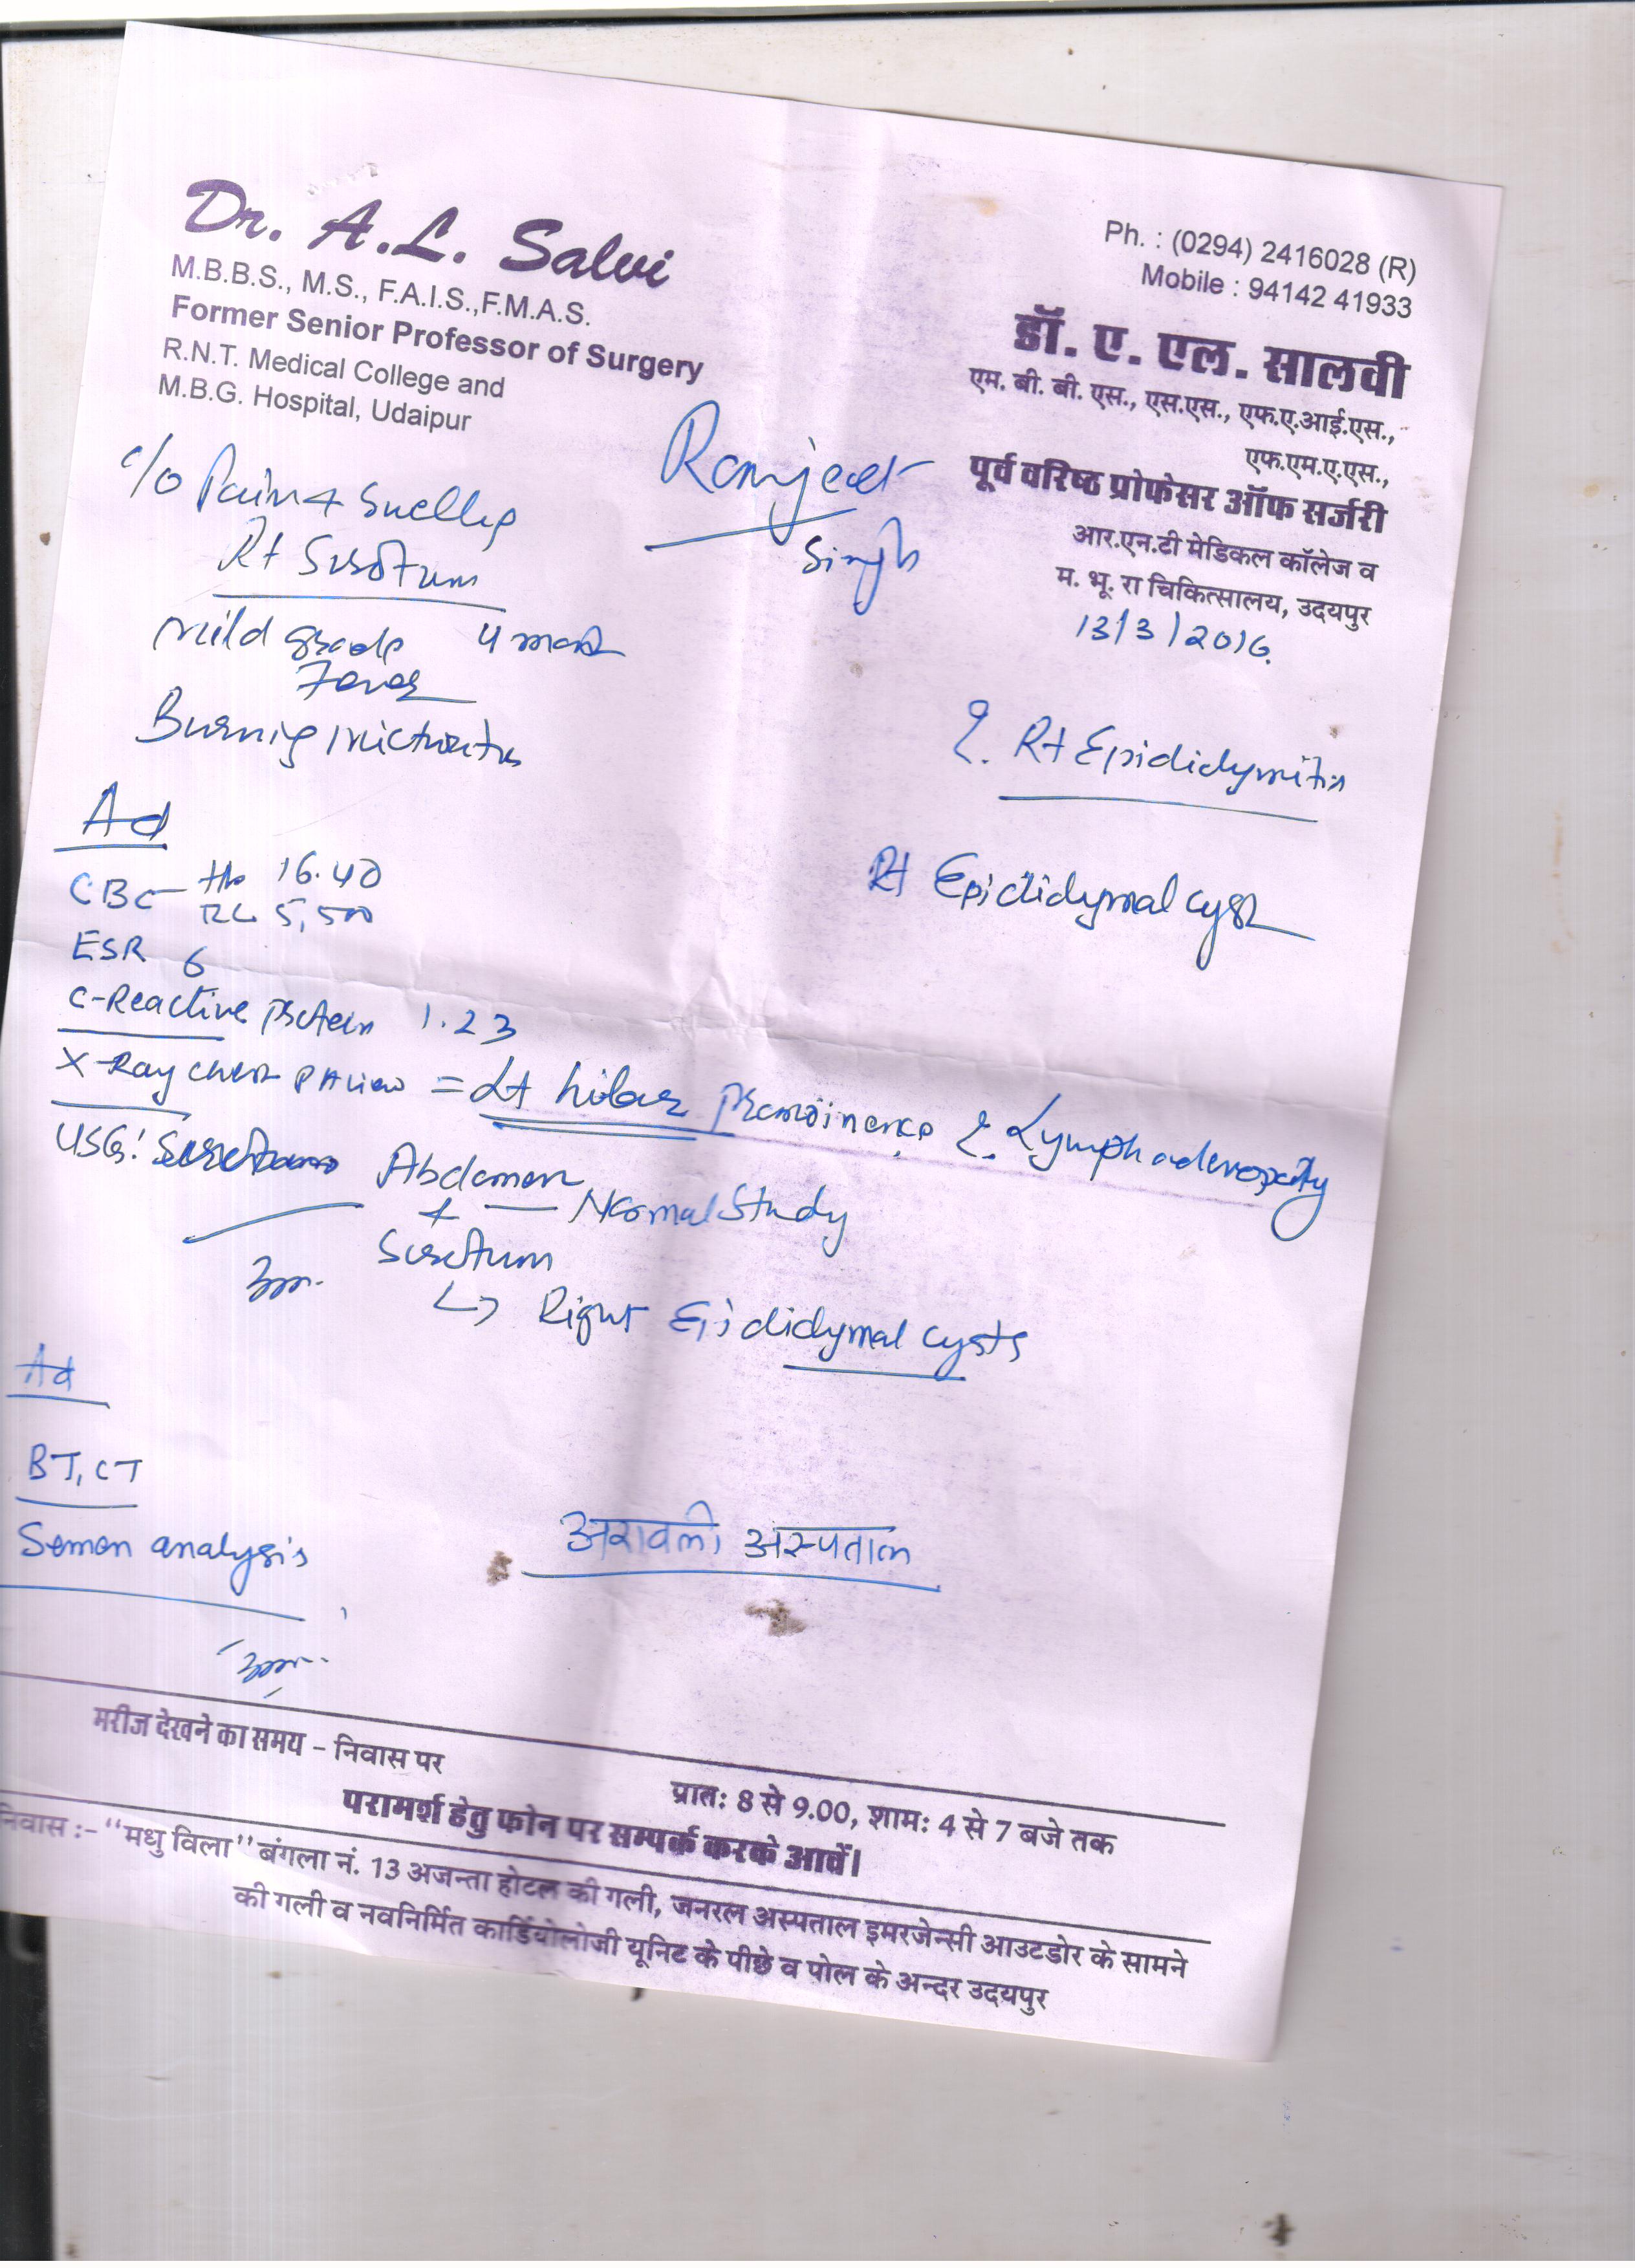 Dr. A.L. Salvi
M.B.B.S., M.S., F.A.I.S.,F.M.A.S.
Former Senior Professor of Surgery
R.N.T. Medical College and
M.B.G. Hospital, Udaipur
Ph. : (0294) 2416028 (R)
Mobile : 94142 41933
डॉ. ए. एल. सालवी
एम. बी. बी. एस., एस.एस., एफ.ए.आई.एस.,
एफ.एम.ए.एस.,
पूर्व वरिष्ठ प्रोफेसर ऑफ सर्जरी
आर.एन.टी मेडिकल कॉलेज व
म. भू. रा चिकित्सालय, उदयपुर
13/3/2016.
Ranjeet
Singh
c/o Pain + Swelling
Rt Scrotum
Mild grade 4 month
Fever
Burning micturition
Rt Epididymitis
Rt Epididymal cyst
Ad
CBC Hb 16.40
5,500
ESR 6
C-Reactive Protein 1.23
X-Ray Chest PA view = Lt hilar Prominence Lymphadenopathy
USG: Abdomen
+ — Normal Study
Scrotum
↳ Right Epididymal cysts
Ad
BT, CT
Semen analysis
अरावली अस्पताल
मरीज देखने का समय – निवास पर
प्रातः 8 से 9.00, शामः 4 से 7 बजे तक
परामर्श हेतु फोन पर सम्पर्क करके आवें।
निवास :– "मधु विला" बंगला नं. 13 अजन्ता होटल की गली, जनरल अस्पताल इमरजेन्सी आउटडोर के सामने
की गली व नवनिर्मित कार्डियोलोजी यूनिट के पीछे व पोल के अन्दर उदयपुर